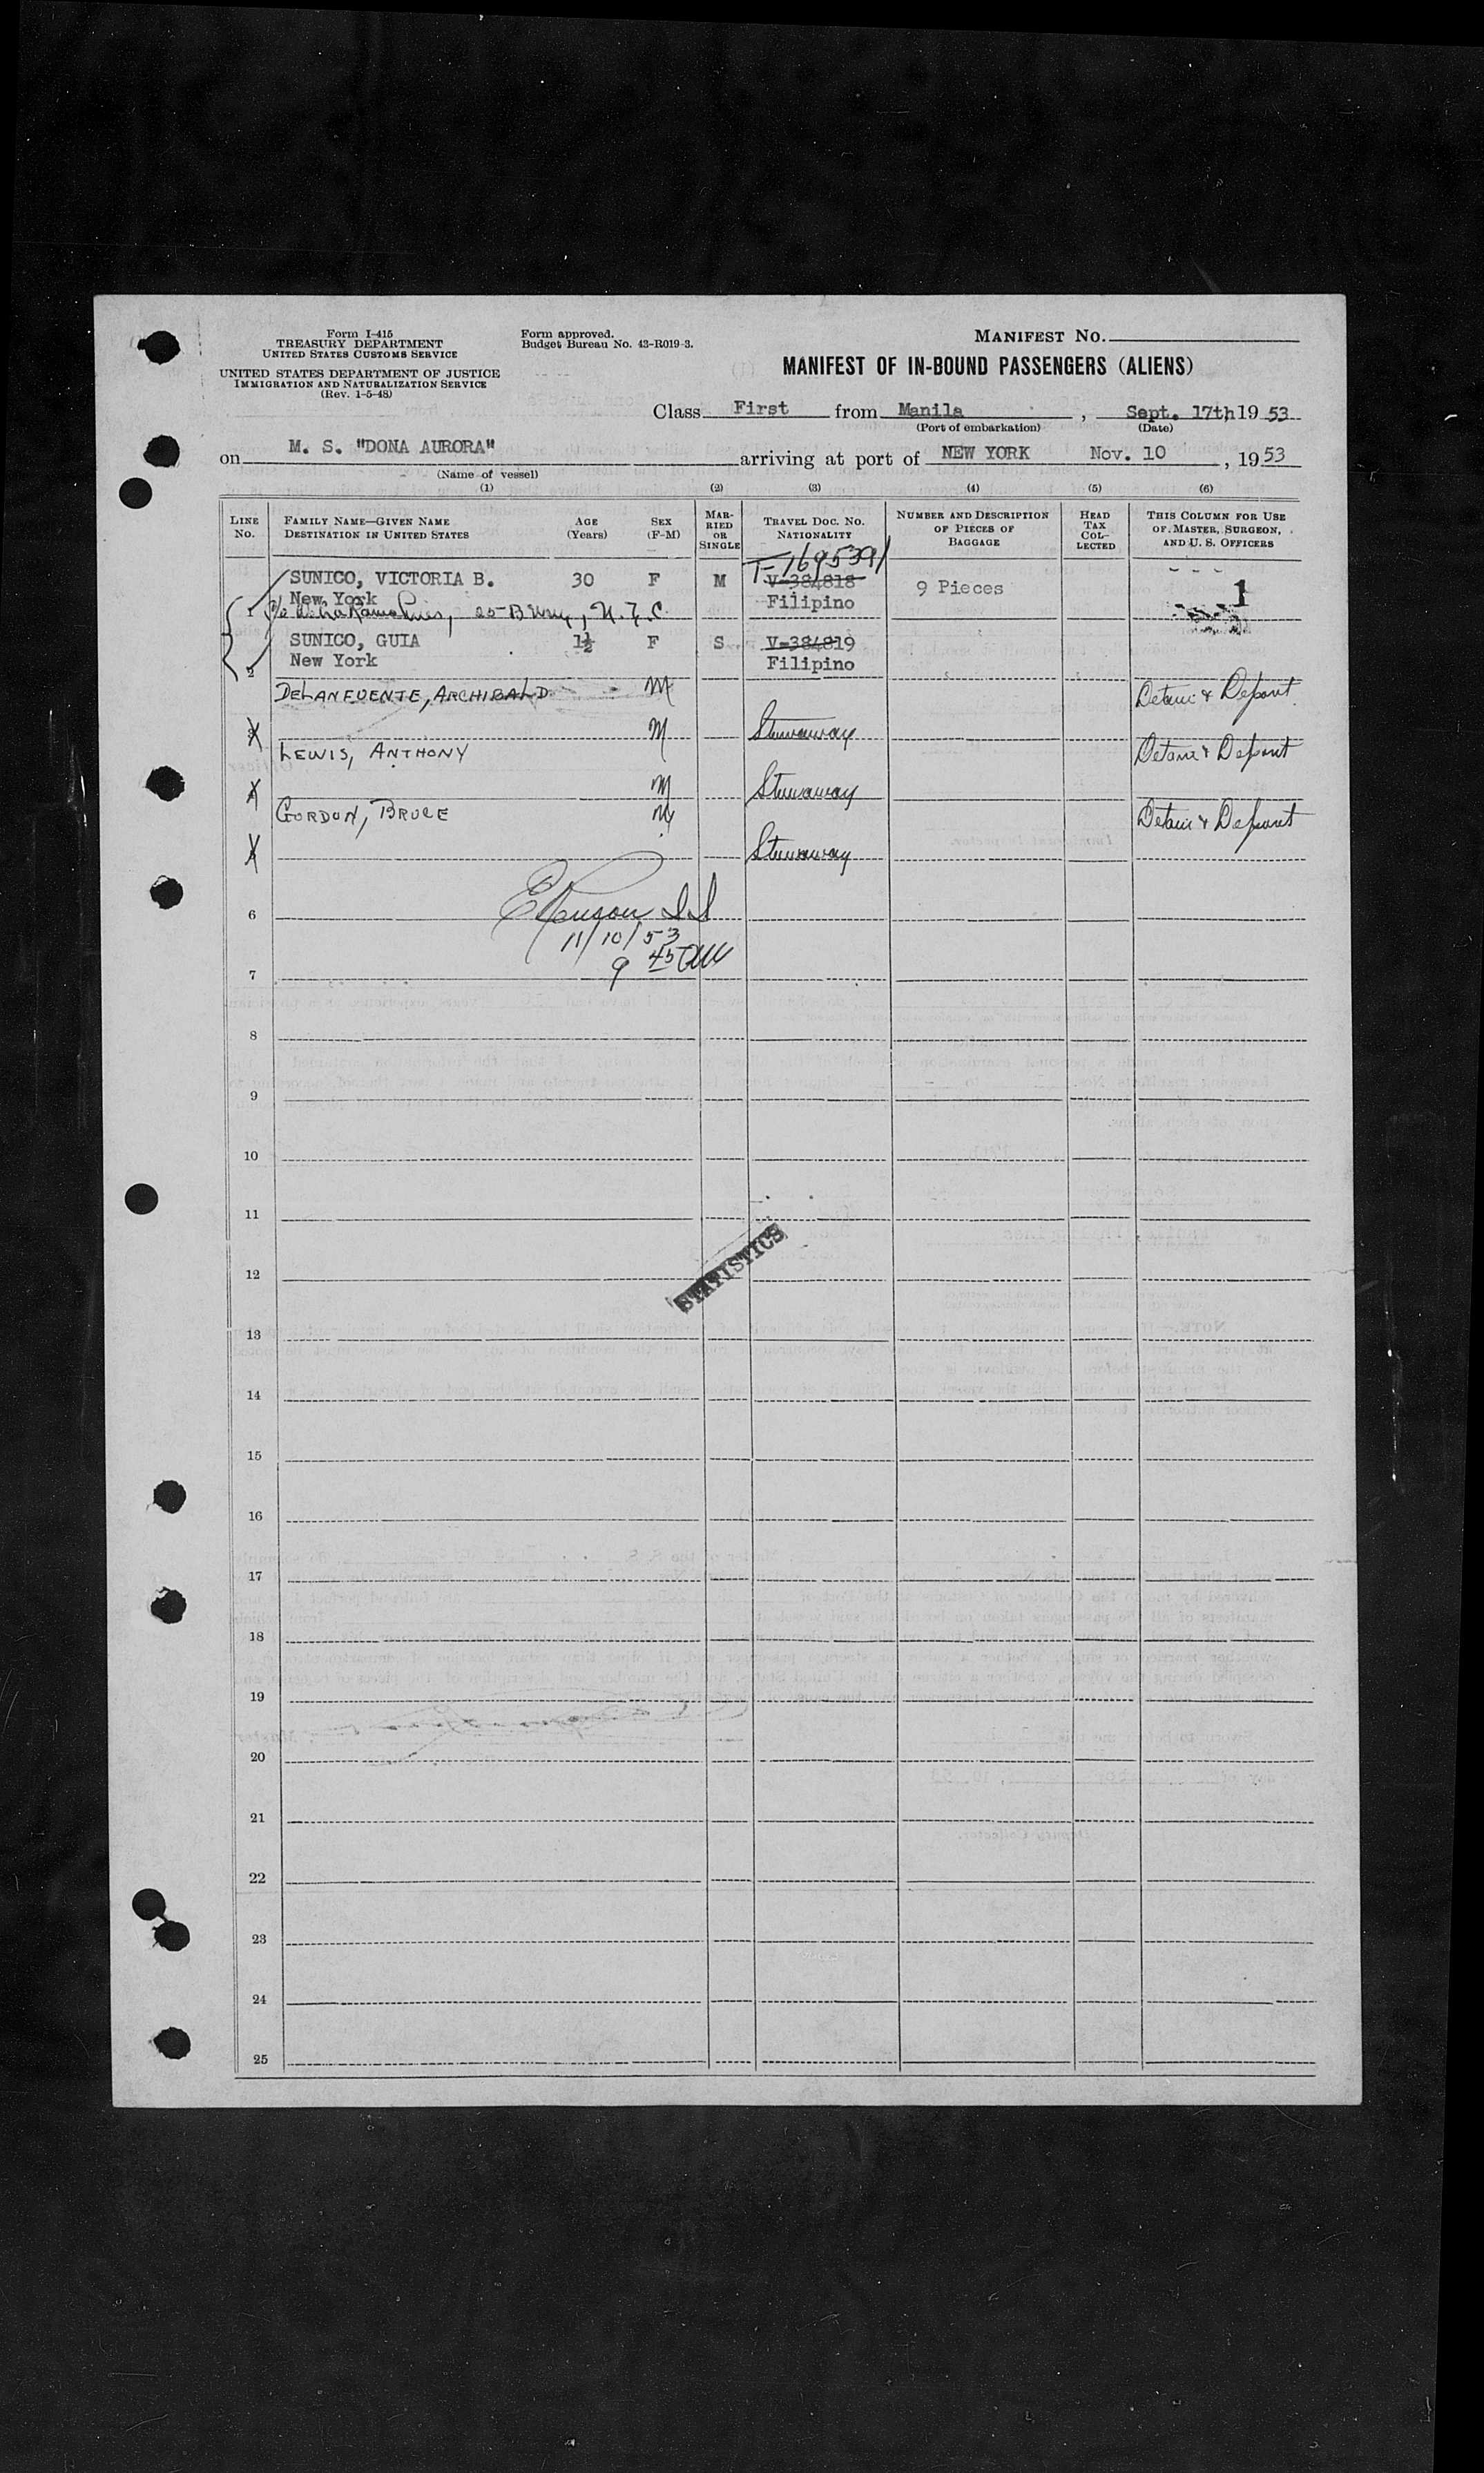 Form I-415
TREASURY DEPARTMENT
UNITED STATES CUSTOMS SERVICE
UNITED STATES DEPARTMENT OF JUSTICE
IMMIGRATION AND NATURALIZATION SERVICE
(Rev. 1-5-48)
Form approved.
Budget Bureau No. 43-R019-3.
MANIFEST NO.
MANIFEST OF IN-BOUND PASSENGERS (ALIENS)
Class First from Manila, Sept. 17th, 1953
(Port of embarkation) (Date)
on M. S. "DONA AURORA" arriving at port of NEW YORK Nov. 10, 1953
(Name of vessel)
(1) (2) (3) (4) (5) (6)
LINE No. FAMILY NAME—GIVEN NAME DESTINATION IN UNITED STATES AGE (Years) SEX (F-M) MARRIED OR SINGLE TRAVEL DOC. NO. NATIONALITY NUMBER AND DESCRIPTION OF PIECES OF BAGGAGE HEAD TAX COLLECTED THIS COLUMN FOR USE OF MASTER, SURGEON, AND U. S. OFFICERS
T-1695391
SUNICO, VICTORIA B. 30 F M V-384818 9 Pieces 1
New York Filipino
1 25 B'way, N.Y.C.
SUNICO, GUIA 1½ F S V-384819
New York Filipino
2
DELAFUENTE, ARCHIBALD M Detain & Deport
M Stowaway
LEWIS, ANTHONY Detain & Deport
M Stowaway
GORDON, BRUCE M Detain & Deport
Stowaway
6
11/10/53
9 45 AM
7
8
9
10
11
STATISTICS
12
13
14
15
16
17
18
19
20
21
22
23
24
25